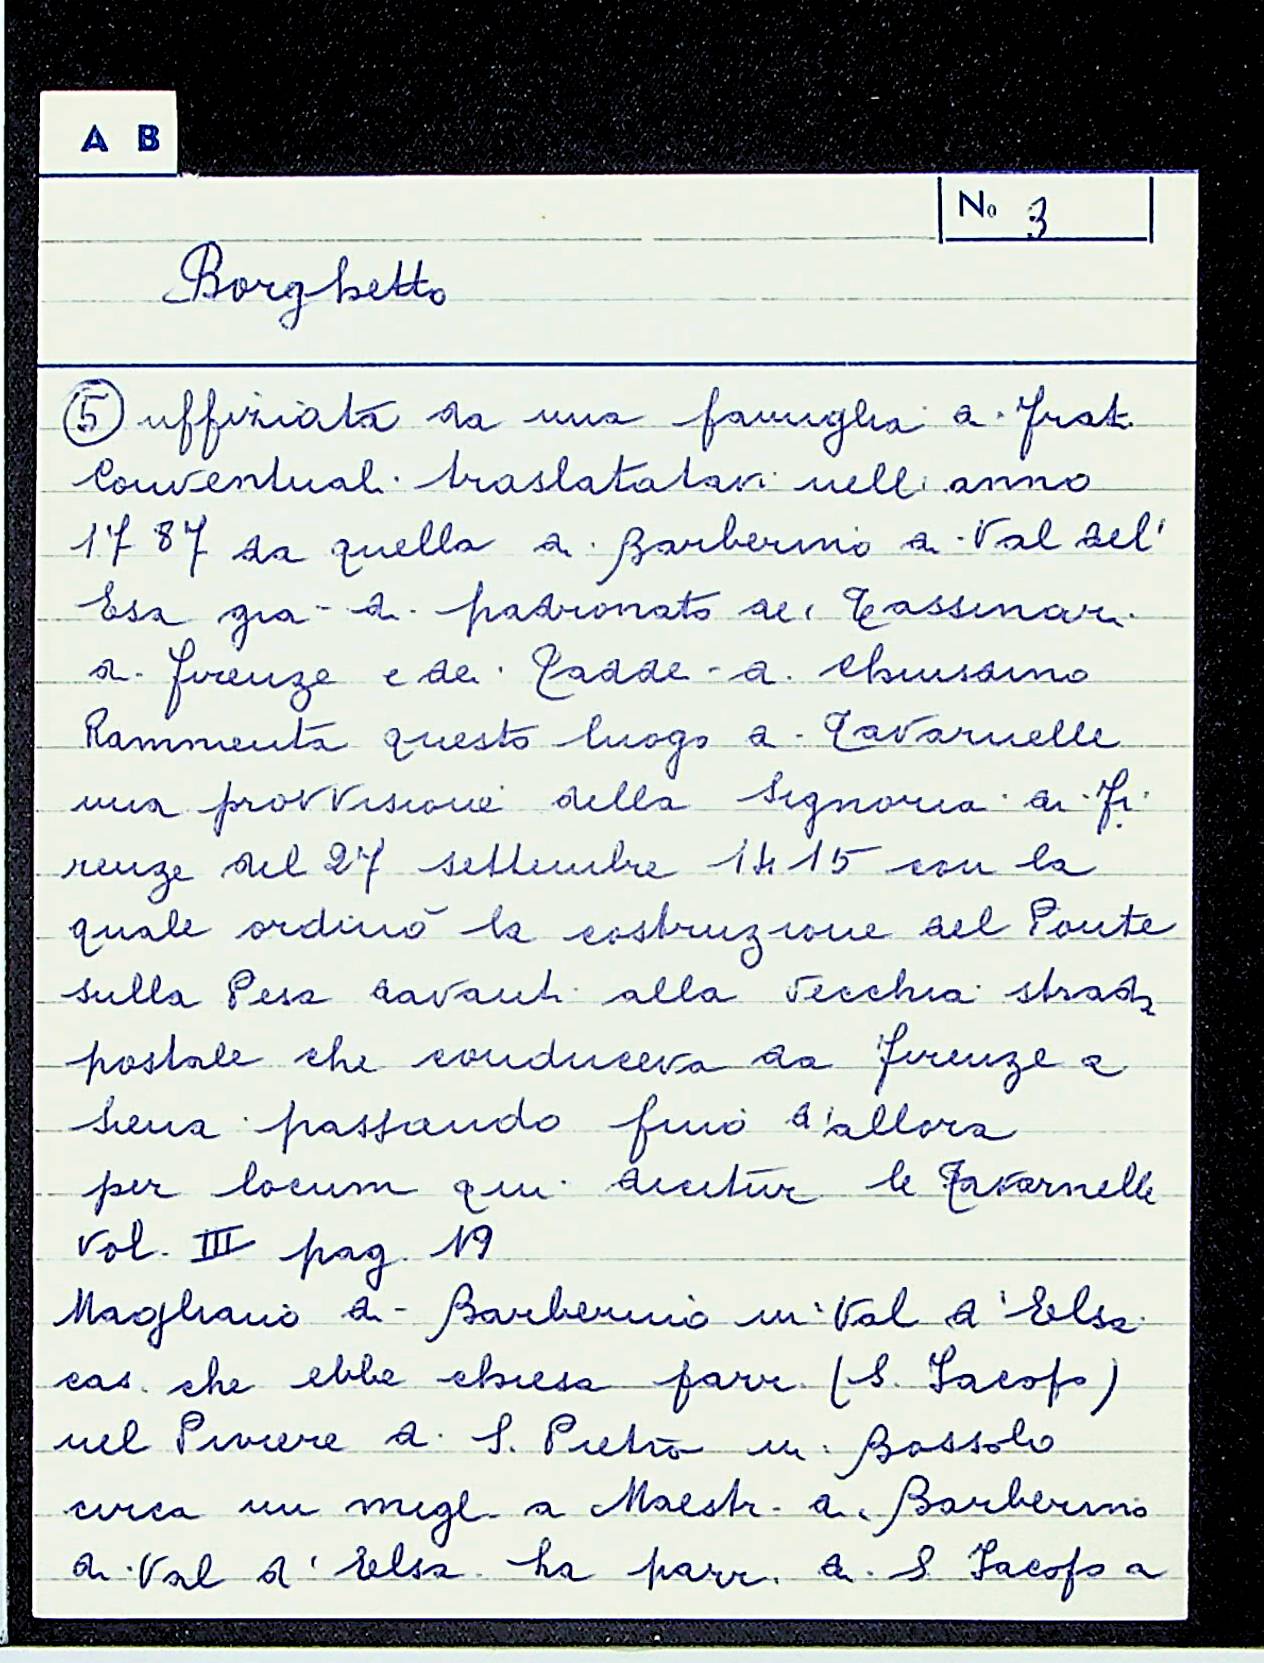 A B
No 3
Borghetto
5 uffiziata da una famiglia di Frati
Conventuali traslatatavi nell'anno
1787 da quella di Barberino di Val del'
Esa già di padronato dei Tassinari
di Firenze e dei Taddei di Chiusdino
Rammenta questo luogo di Tavarnelle
una provvisione della Signoria di Fi
renze del 27 settembre 1415 con la
quale ordinò la costruzione del Ponte
sulla Pesa davanti alla vecchia strada
postale che conduceva da Firenze a
Siena passando fino d'allora
per locum qui dicitur le Tavarnelle
Vol. III pag. 19
Magliano di Barberino in Val d'Elsa
cas. che ebbe chiesa parr. (S. Jacopo)
nel Piviere di S. Pietro in Bossolo
circa un migl. a Maestr. di Barberino
di Val d'Elsa ha parr. di S. Jacopo a